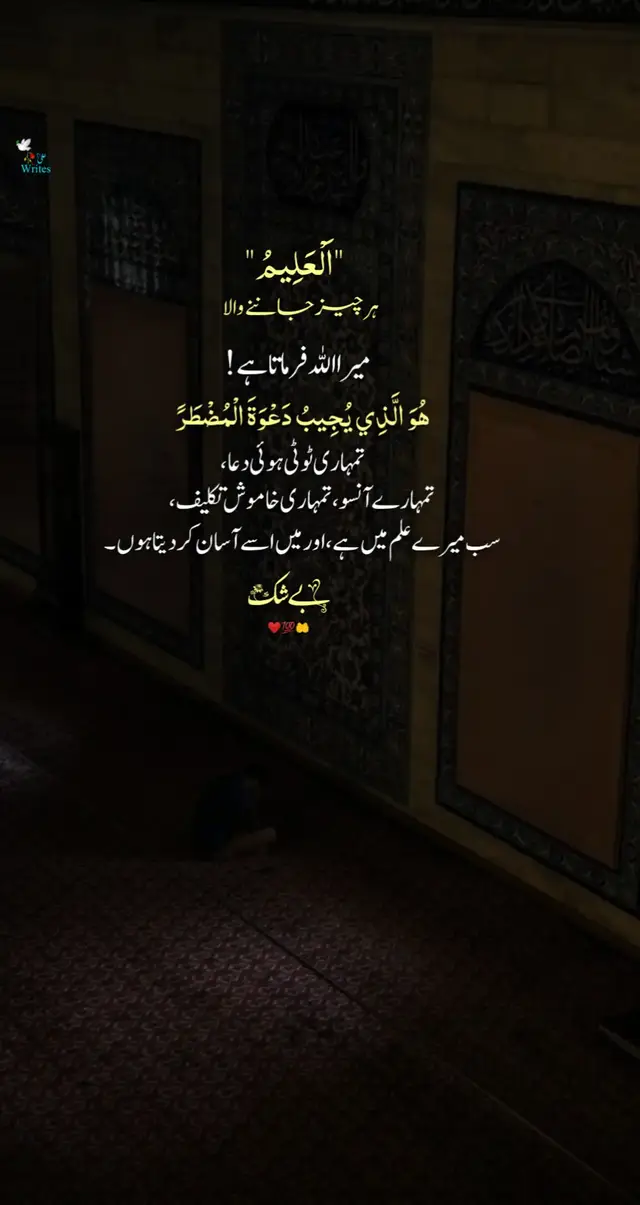 Writes
"اَلْعَلِيمُ"
ہر چیز جاننے والا
میرا اللہ فرماتا ہے !
هُوَ الَّذِي يُجِيبُ دَعْوَةَ الْمُضْطَرَّ
تمہاری ٹوٹی ہوئی دعا،
تمہارے آنسو، تمہاری خاموش تکلیف،
سب میرے علم میں ہے، اور میں اسے آسان کر دیتا ہوں۔
بے شک